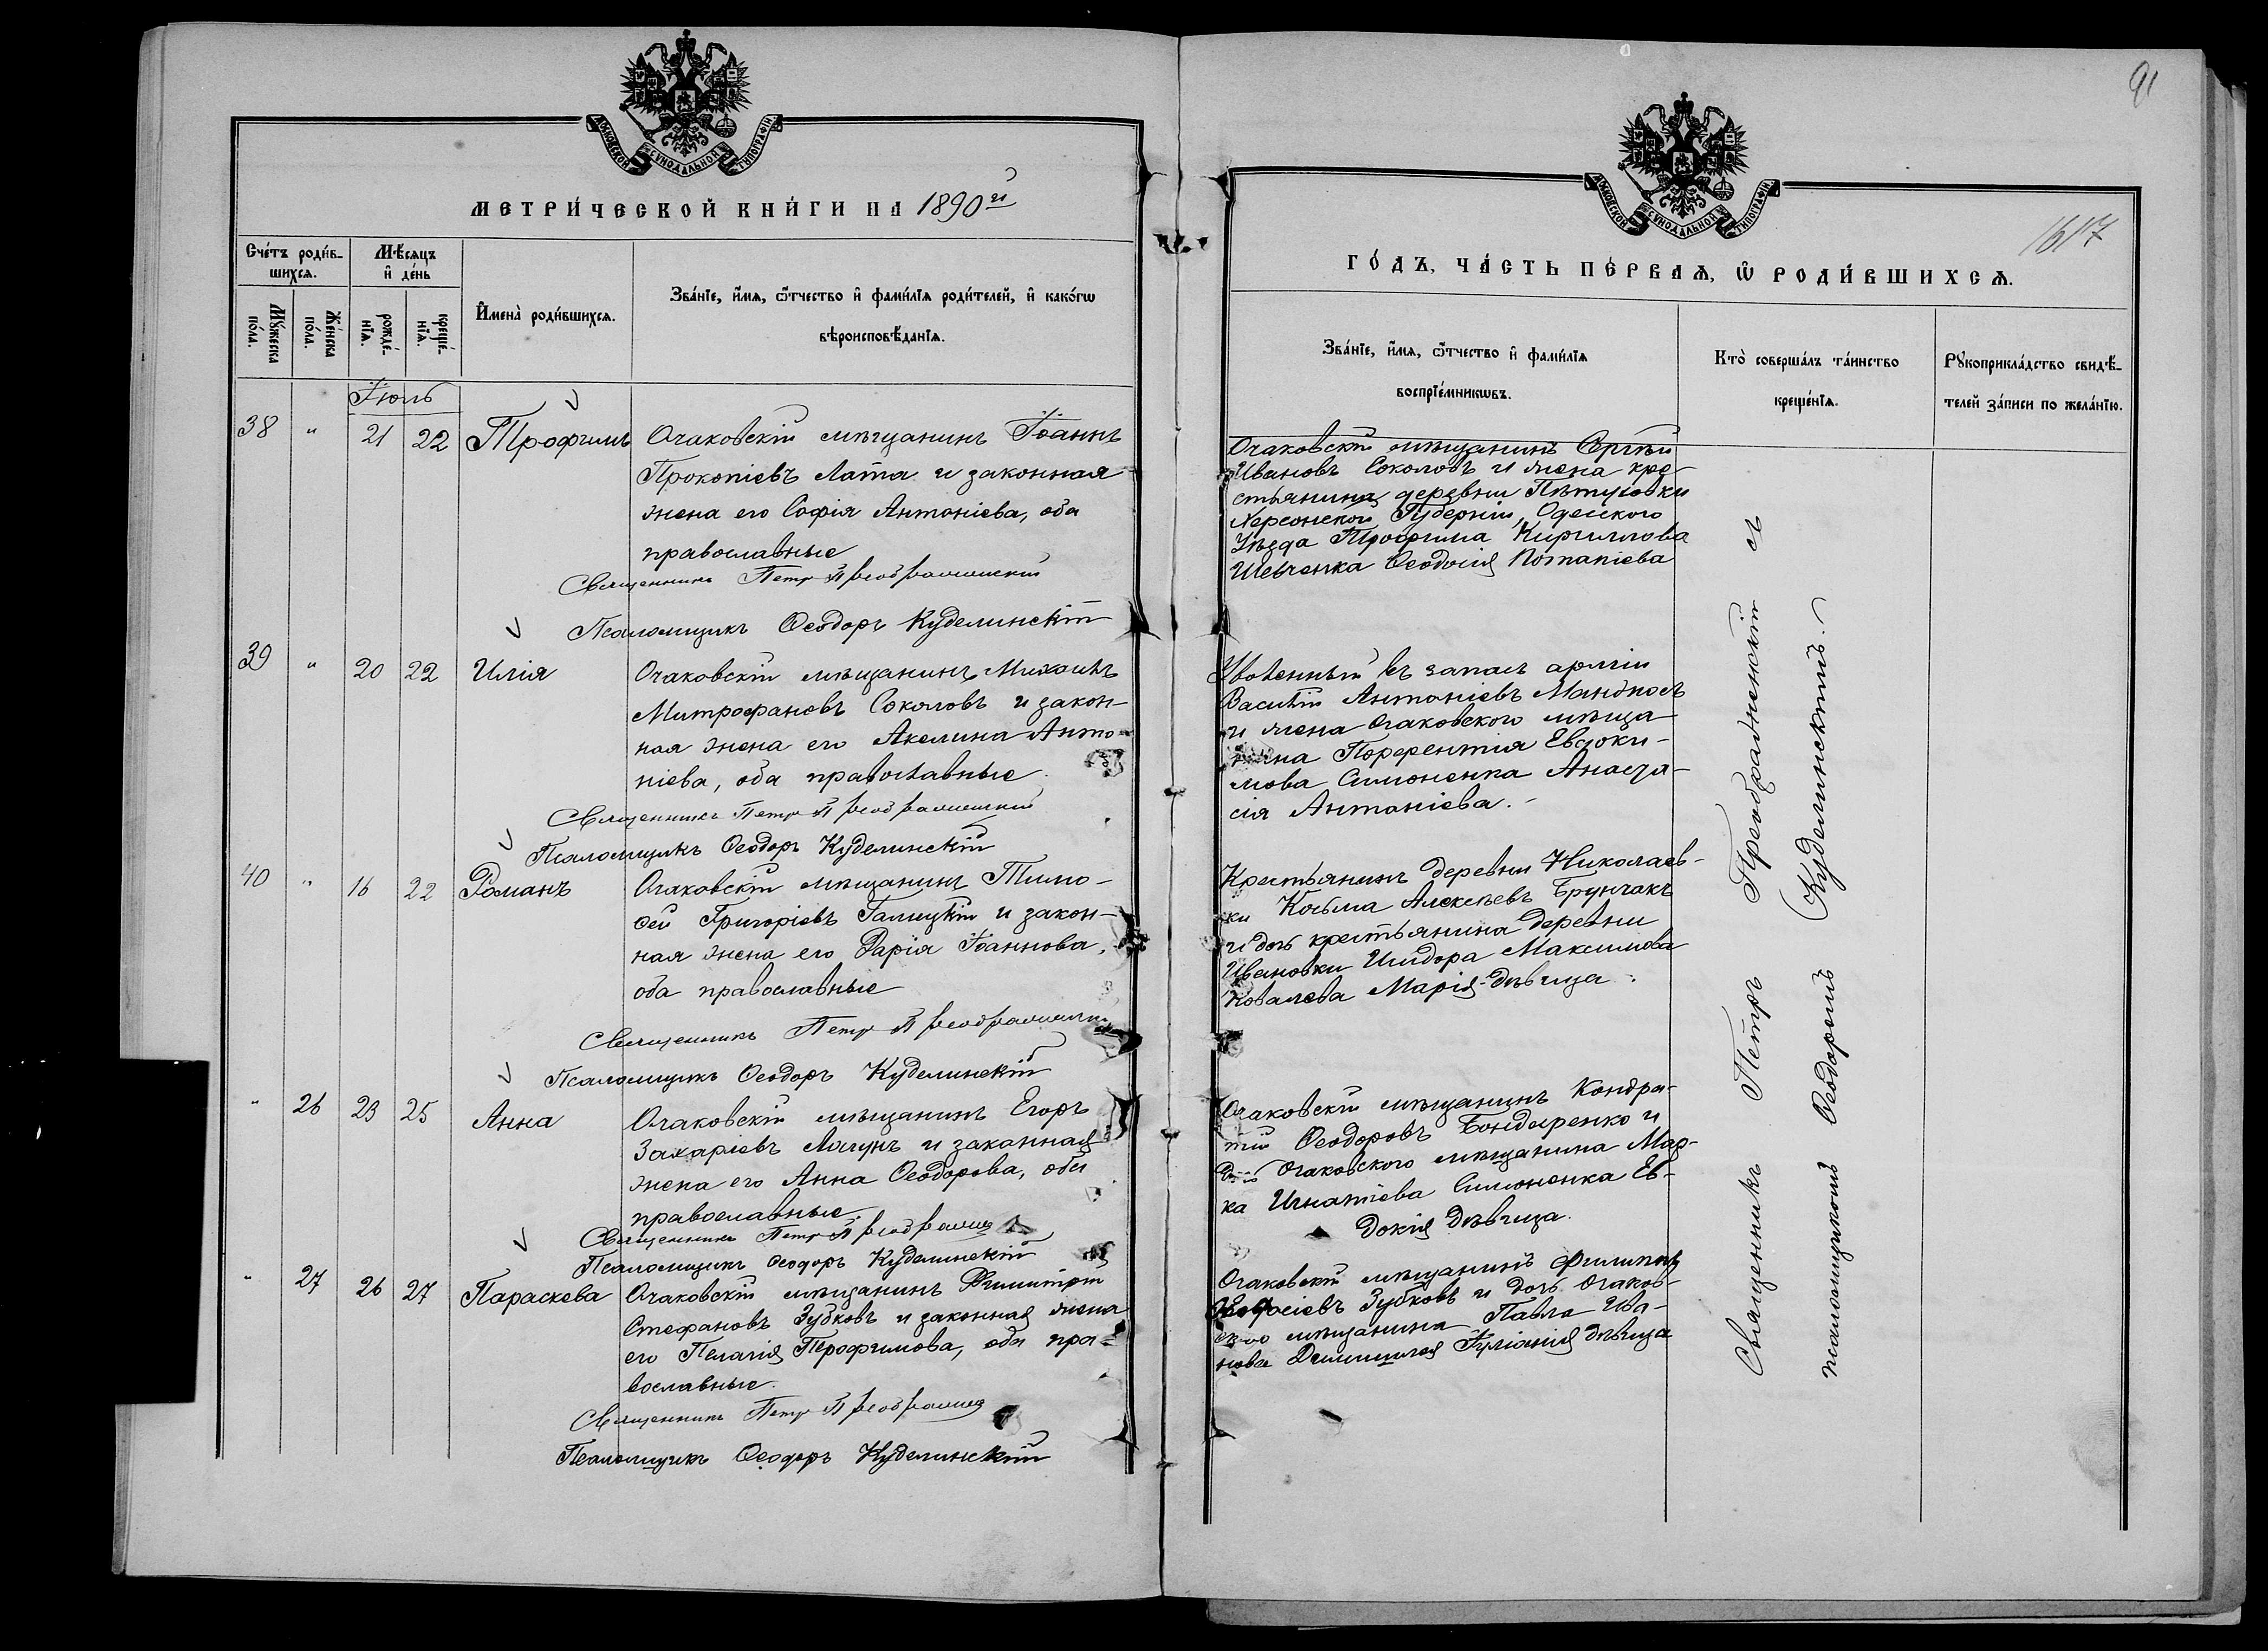 МОСКОВСКОЙ СѴНОДАЛЬНОЙ ТИПОГРАФІИ
МЕТРИ́ЧЕСКОЙ КНИ́ГИ НА 1890й
Сче́тъ роди́в-
шихсѧ.
Мѣ́сѧцъ
и҆ де́нь
Мꙋ́жеска
по́ла.
Же́нска
по́ла.
рожде́-
нїѧ.
креще́-
нїѧ.
И҆мена̀ роди́вшихсѧ.
Зва́нїе, и҆́мѧ, ѻ҆́тчество и҆ фами́лїѧ роди́телей, и҆ како́гѡ
вѣроисповѣ́данїѧ.
Іюль
38 " 21 22 Трофимъ Очаковскій мѣщанинъ Іоаннъ
Прокопіевъ Лата и законная
жена его Софія Антоніева, оба
православные
Священникъ Петр Преображенскій
Псаломщикъ Ѳеодоръ Куделинскій
39 " 20 22 Илія Очаковскій мѣщанинъ Михаилъ
Митрофановъ Соколовъ и закон-
ная жена его Акелина Анто-
ніева, оба православные.
Священникъ Петр Преображенскій
Псаломщикъ Ѳеодоръ Куделинскій
40 " 16 22 Романъ Очаковскій мѣщанинъ Тимо-
ѳей Григоріевъ Галицкій и закон-
ная жена его Дарія Іоаннова,
оба православные
Священникъ Петр Преображенскій
Псаломщикъ Ѳеодоръ Куделинскій
" 26 23 25 Анна Очаковскій мѣщанинъ Егоръ
Захаріевъ Лягунъ и законная
жена его Анна Ѳеодорова, оба
православные.
Священникъ Петр Преображенскій
Псаломщикъ Ѳеодоръ Куделинскій
" 27 26 27 Параскева Очаковскій мѣщанинъ Димитрій
Стефановъ Зубковъ и законная жена
его Пелагія Трофимова, оба пра-
вославные.
Священникъ Петр Преображенскій
Псаломщикъ Ѳеодоръ Куделинскій
91
1617
МОСКОВСКОЙ СѴНОДАЛЬНОЙ ТИПОГРАФІИ
ГО́ДЪ, ЧА́СТЬ ПЕ́РВАѦ, Ѡ҆ РОДИ́ВШИХСѦ.
Зва́нїе, и҆́мѧ, ѻ҆́тчество и҆ фами́лїѧ
воспрїе́мникѡвъ.
Кто̀ соверша́лъ та́инство
креще́нїѧ.
Рꙋкоприкла́дство свидѣ́-
телей за́писи по жела́нїю.
Очаковскій мѣщанинъ Сергѣй
Ивановъ Соколовъ и жена кре-
стьянина деревни Пѣтуховки
Херсонской Губерніи, Одесского
Уѣзда Трофима Кириллова
Шевченка Ѳеодосія Потапіева
Уволенный въ запасъ арміи
Василій Антоніевъ
и жена Очаковского мѣща-
нина Евдоки-
мова Симоненка Анаста-
сія Антоніева.-
Крестьянинъ деревни Николаев-
ки Косьма Алексѣевъ Брунчакъ
и дочь крестьянина деревни
Ивановки Исидора Максимова
Ковалева Марія-дѣвица.
Очаковскій мѣщанинъ Кондра-
тій Ѳеодоровъ Бондаренко и
дочь Очаковского мѣщанина Мар-
ка Игнатіева Симоненка Ев-
докія дѣвица.
Очаковскій мѣщанинъ Филиппъ
Зубковъ и дочь Очаков-
ского мѣщанина Павла Ива-
нова Іуліанія дѣвица
Священникъ Петръ Преображенскій съ
псаломщикомъ Ѳеодоромъ Куделинскимъ.